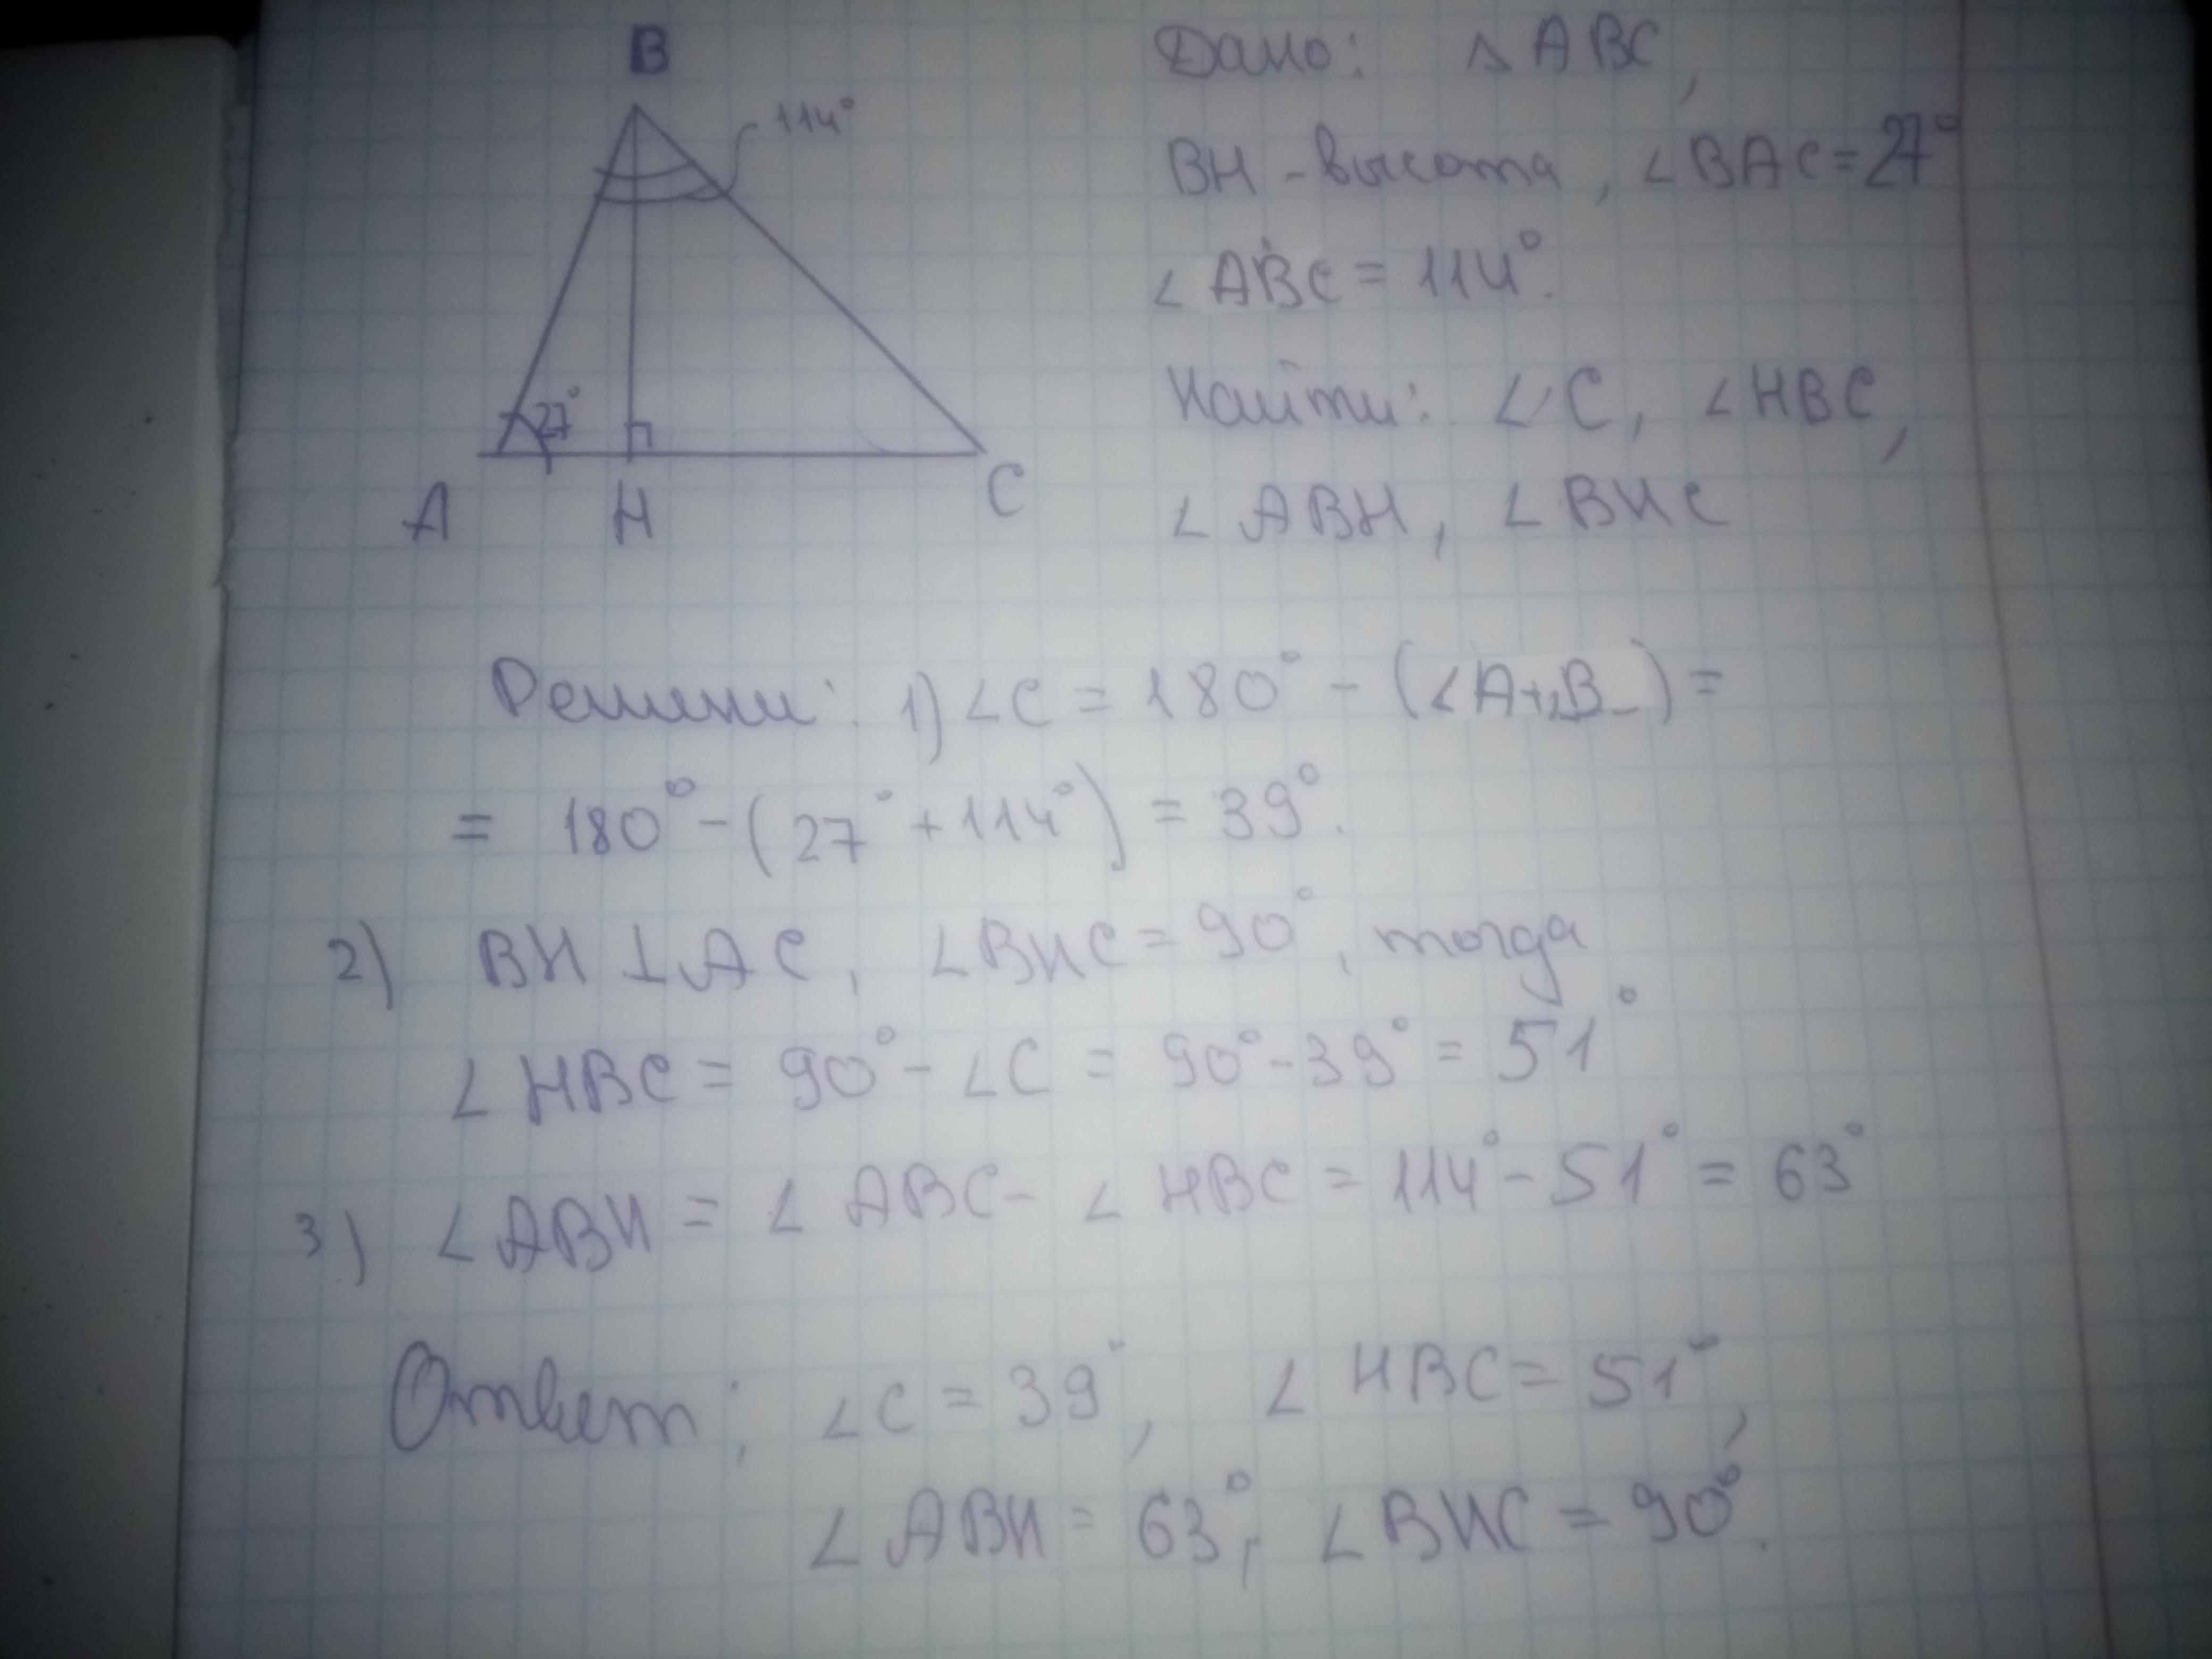 B
114°
27°
A H C
Дано: △ ABC,
BH - высота, ∠BAC = 27°
∠ ABC = 114°.
Найти: ∠C, ∠HBC,
∠ ABH, ∠BHC
Решени: 1) ∠C = 180° - (∠A+∠B) =
= 180° - (27° + 114°) = 39°.
2) BH ⊥ AC, ∠BHC = 90°, тогда
∠ HBC = 90° - ∠C = 90° - 39° = 51°
3) ∠ABH = ∠ ABC - ∠ HBC = 114° - 51° = 63°
Ответ: ∠C = 39°, ∠ HBC = 51°,
∠ ABH = 63°, ∠BHC = 90°.